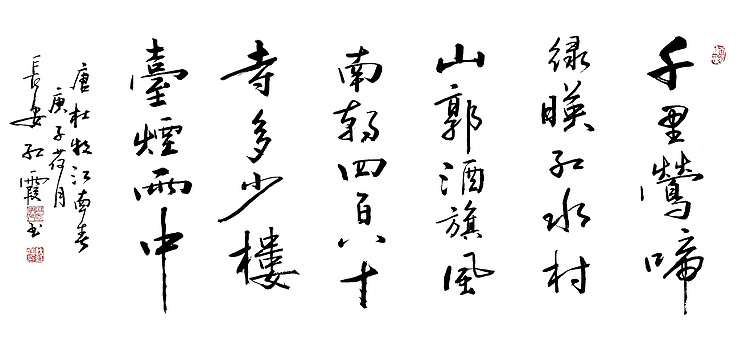 千里鶯啼
绿暎红水村
山郭酒旗風
南朝四百八十
寺多少樓
臺煙雨中
唐杜牧江南春
庚子荷月
長安红霞书